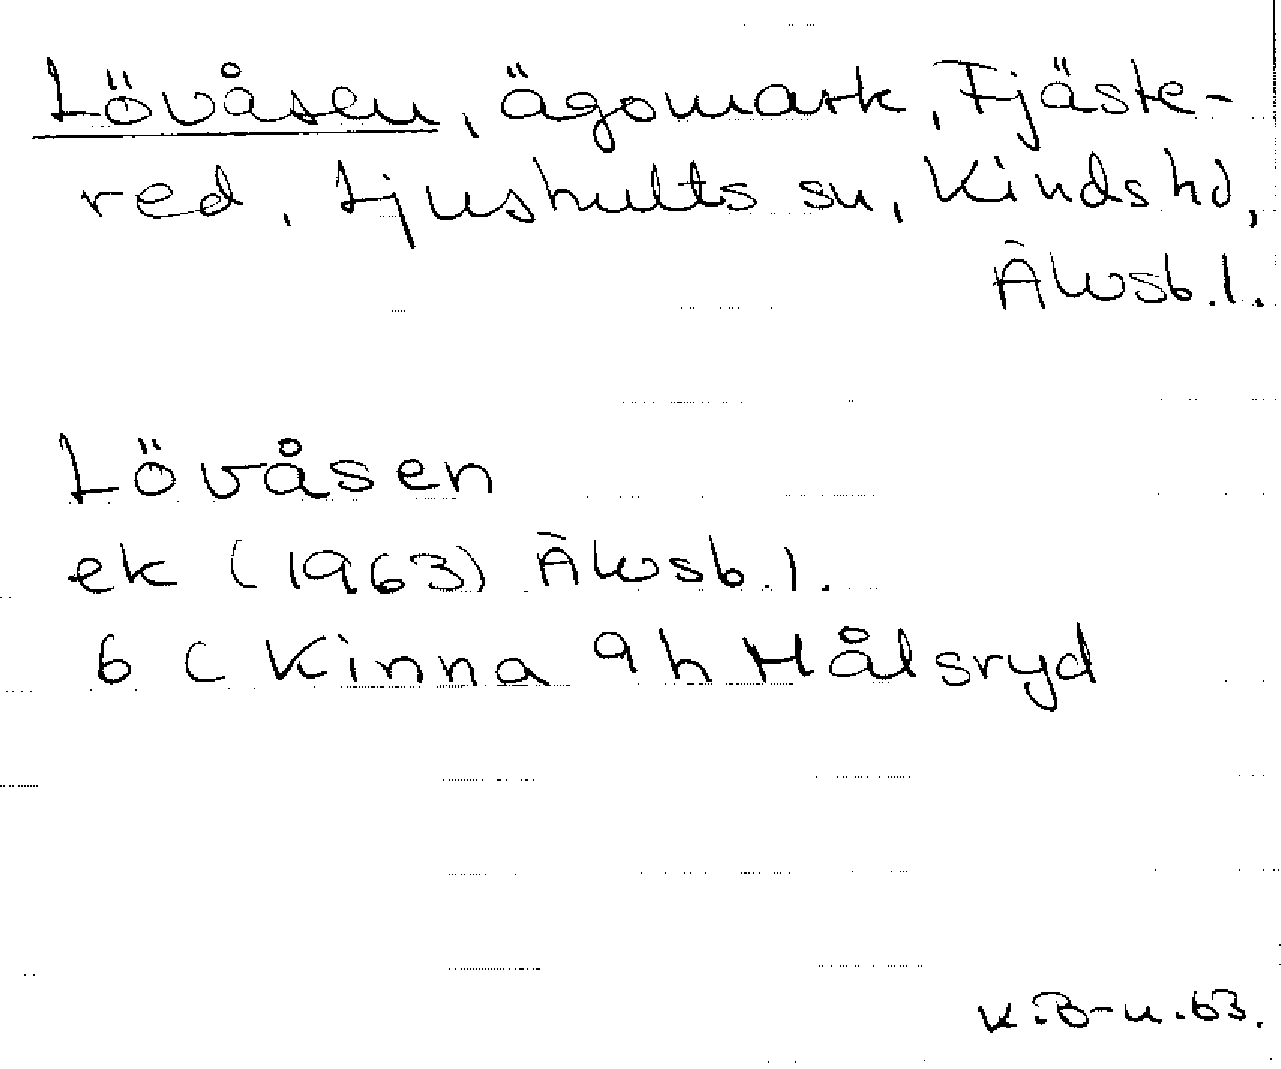 Lövåsen, ägomark, Fjäste-
red, Ljushults sn, Kinds hd,
Älvsb. l.
Lövåsen
ek (1963) Älvsb. l.
6 C Kinna 9 h Målsryd
K.B-n.63.